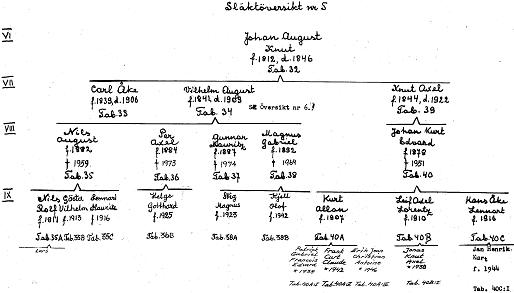 Släktöversikt nr 5
VI
Johan August
Knut
f.1812, d.1846
Tab.32
VII
Carl Åke
f.1839, d.1906
Tab.33
Vilhelm August
f.1841, d.1909
Tab. 34
se Översikt nr 6.
Knut Axel
f.1844, d.1922
Tab. 39
VIII
Nils
August
f.1882
† 1959
Tab.35
Per
Axel
f.1884
† 1973
Tab.36
Gunnar
Mauritz
f.1887
† 1974
Tab.37
Magnus
Gabriel
f.1892
† 1969
Tab.38
Johan Kurt
Edvard
f.1878
† 1951
Tab.40
IX
Nils
Rolf
f.1911
Tab.35A
Gösta
Vilhelm
f.1913
Tab.35B
Lennart
Mauritz
f.1916
Tab.35C
Helge
Gotthard
f.1925
Tab.36B
Stig
Magnus
f.1923
Tab.38A
Kjell
Olof
Tab.38B
Kurt
Allan
f.1907
Tab.40A
Leif Axel
Lorentz
f.1910
Tab.40B
Hans Åke
Lennart
f.1916
Tab.40C
Lars
Patrick
Gabriel
Francois
Edvard
* 1938
Tab.40A:I
Frank
Curt
Claude
* 1942
Tab.40A:II
Erik Jean
Christian
Antoine
* 1946
Tab.40A:III
Jonas
Knut
Axel
* 1938
Tab.40B:I
Jan Henrik
Kurt
f. 1944
Tab. 40C:I